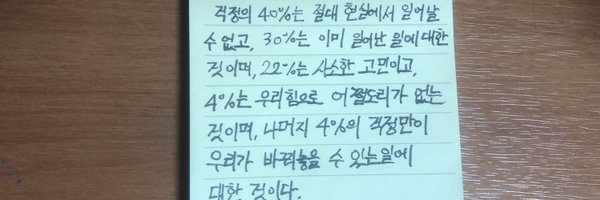 걱정의 40%는 절대 현실에서 일어날
수 없고, 30%는 이미 일어난 일에 대한
것이며, 22%는 사소한 고민이고,
4%는 우리힘으로 어쩔도리가 없는
것이며, 나머지 4%의 걱정만이
우리가 바꿔놓을 수 있는일에
대한 것이다.